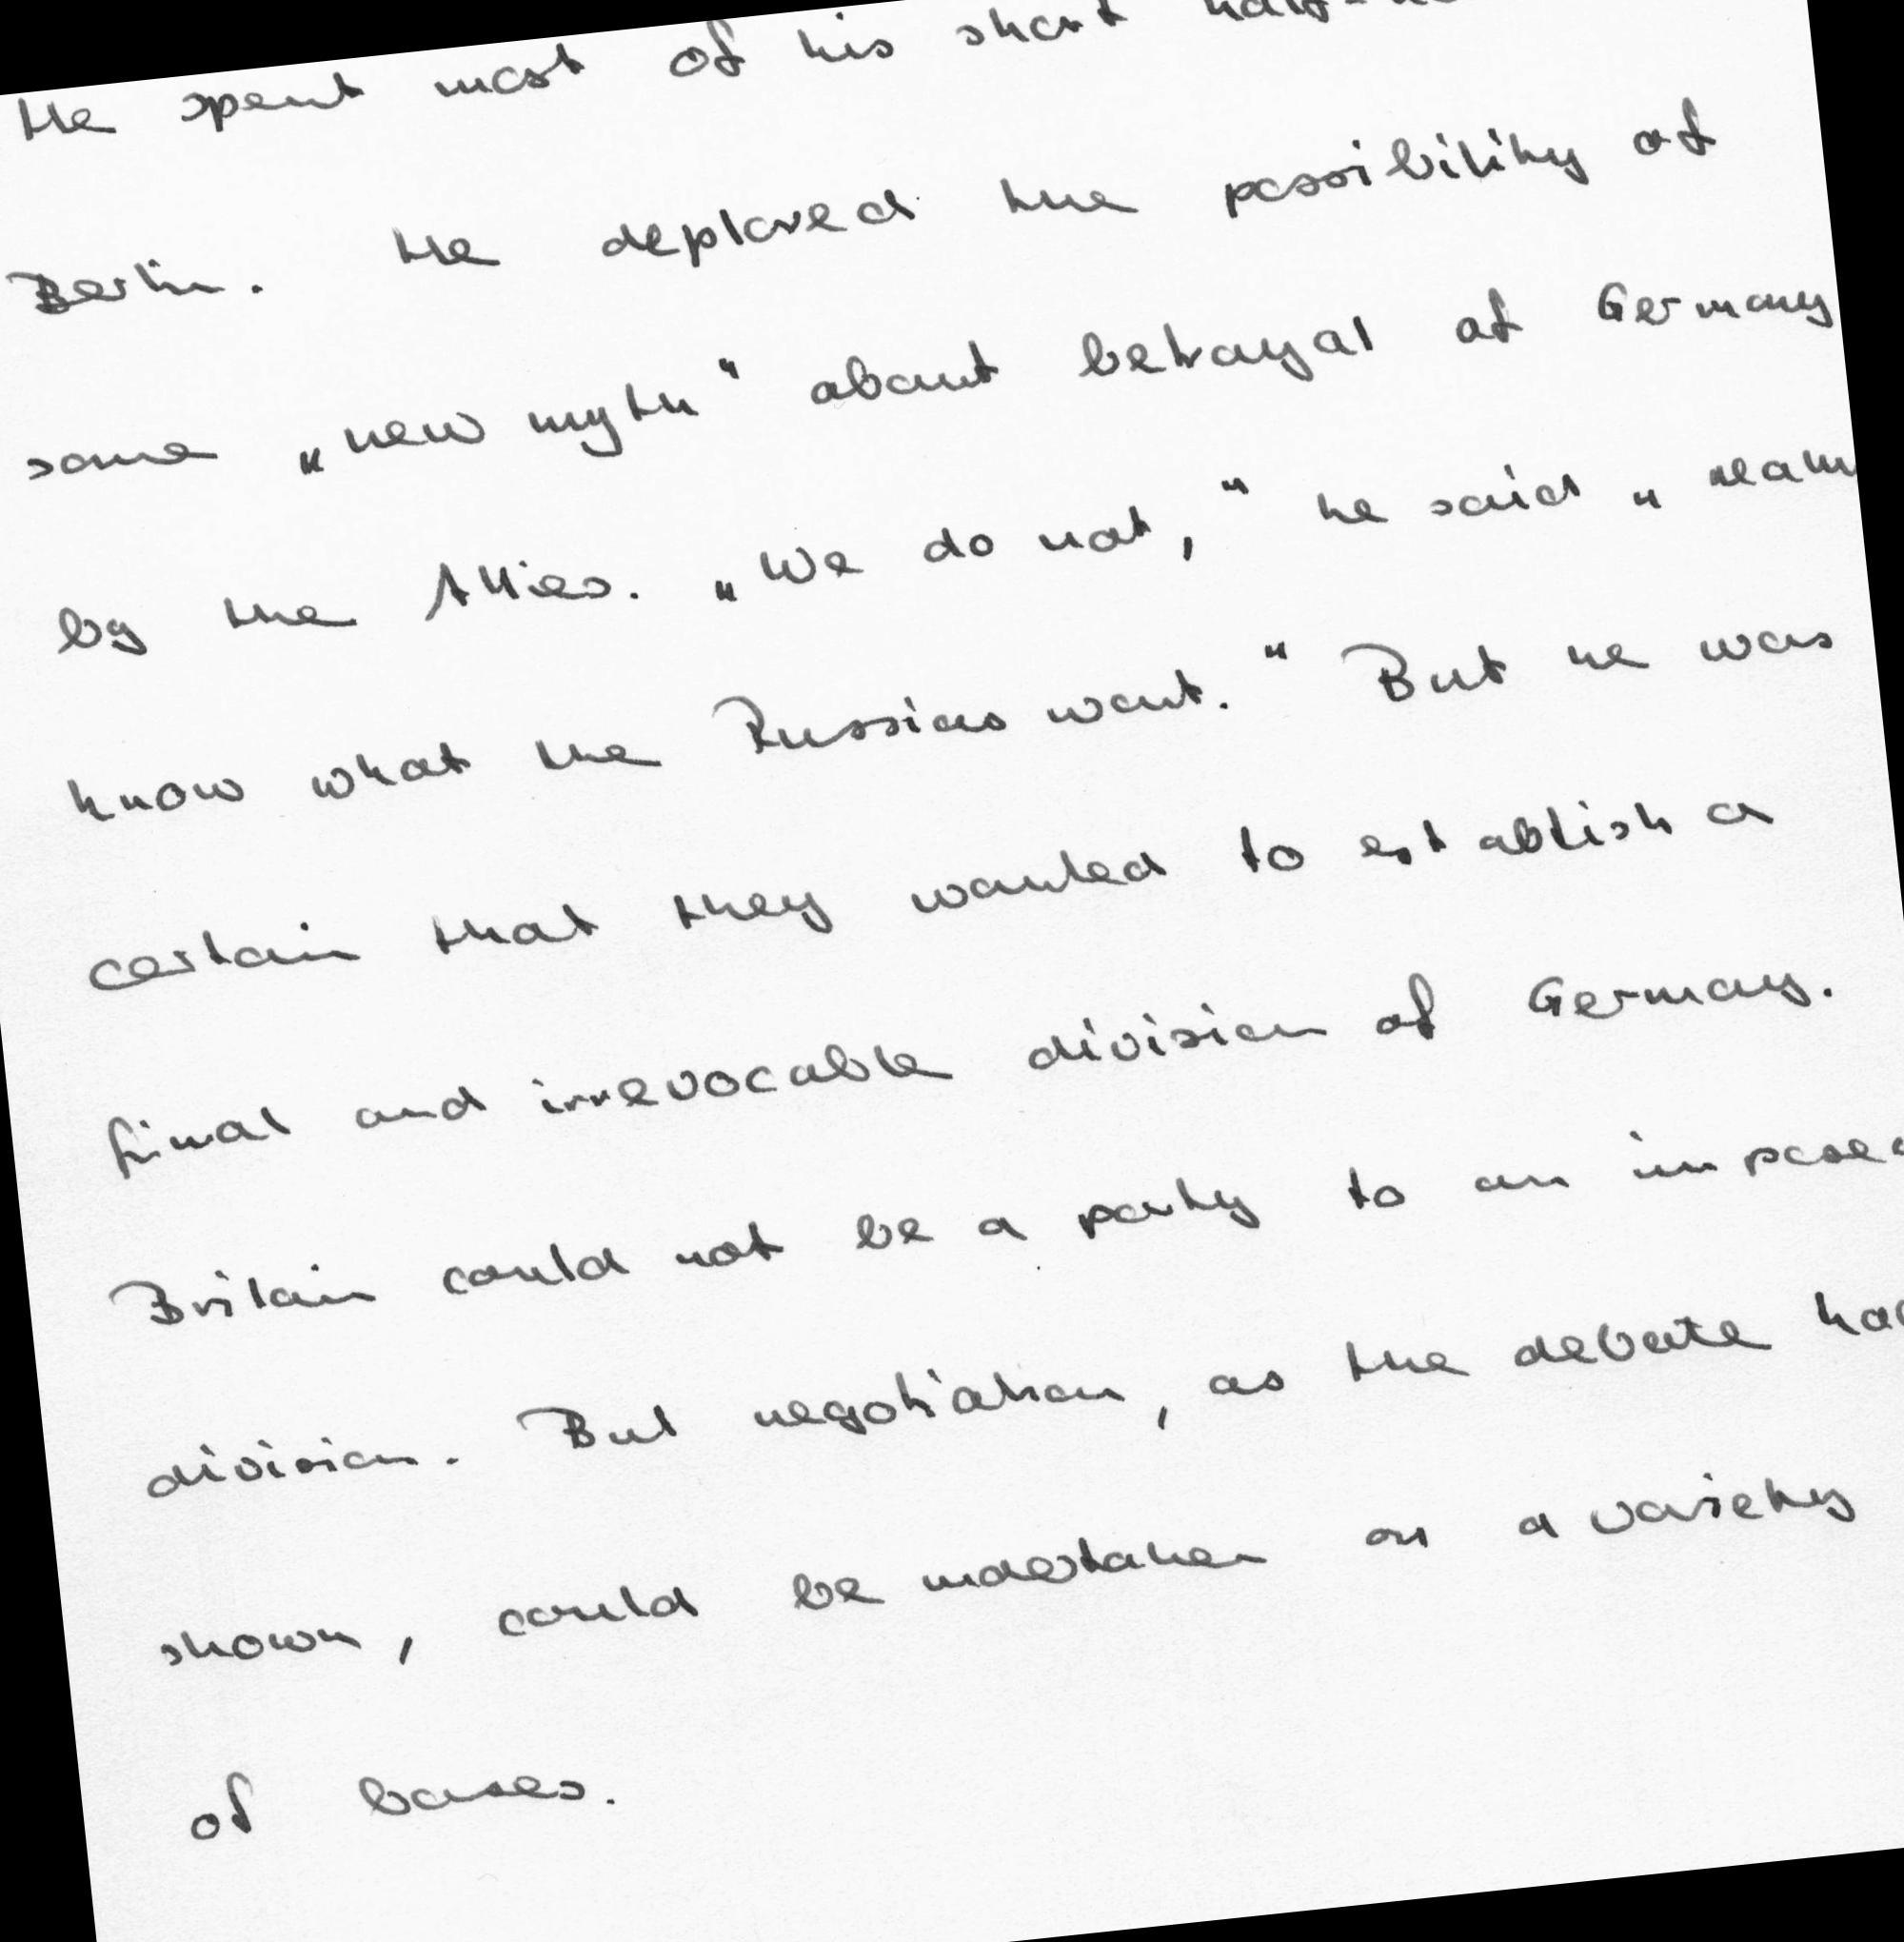 He spent most of his short
Berlin. He deplored the possibility of
some „new myth“ about betrayal of Germany
by the Allies. „We do not,“ he said „
know what the Russians want.“ But he was
certain that they wanted to establish a
final and irrevocable division of Germany.
Britain could not be a party to an imposed
division. But negotiation, as the debate had
shown, could be undertaken on a variety
of bases.